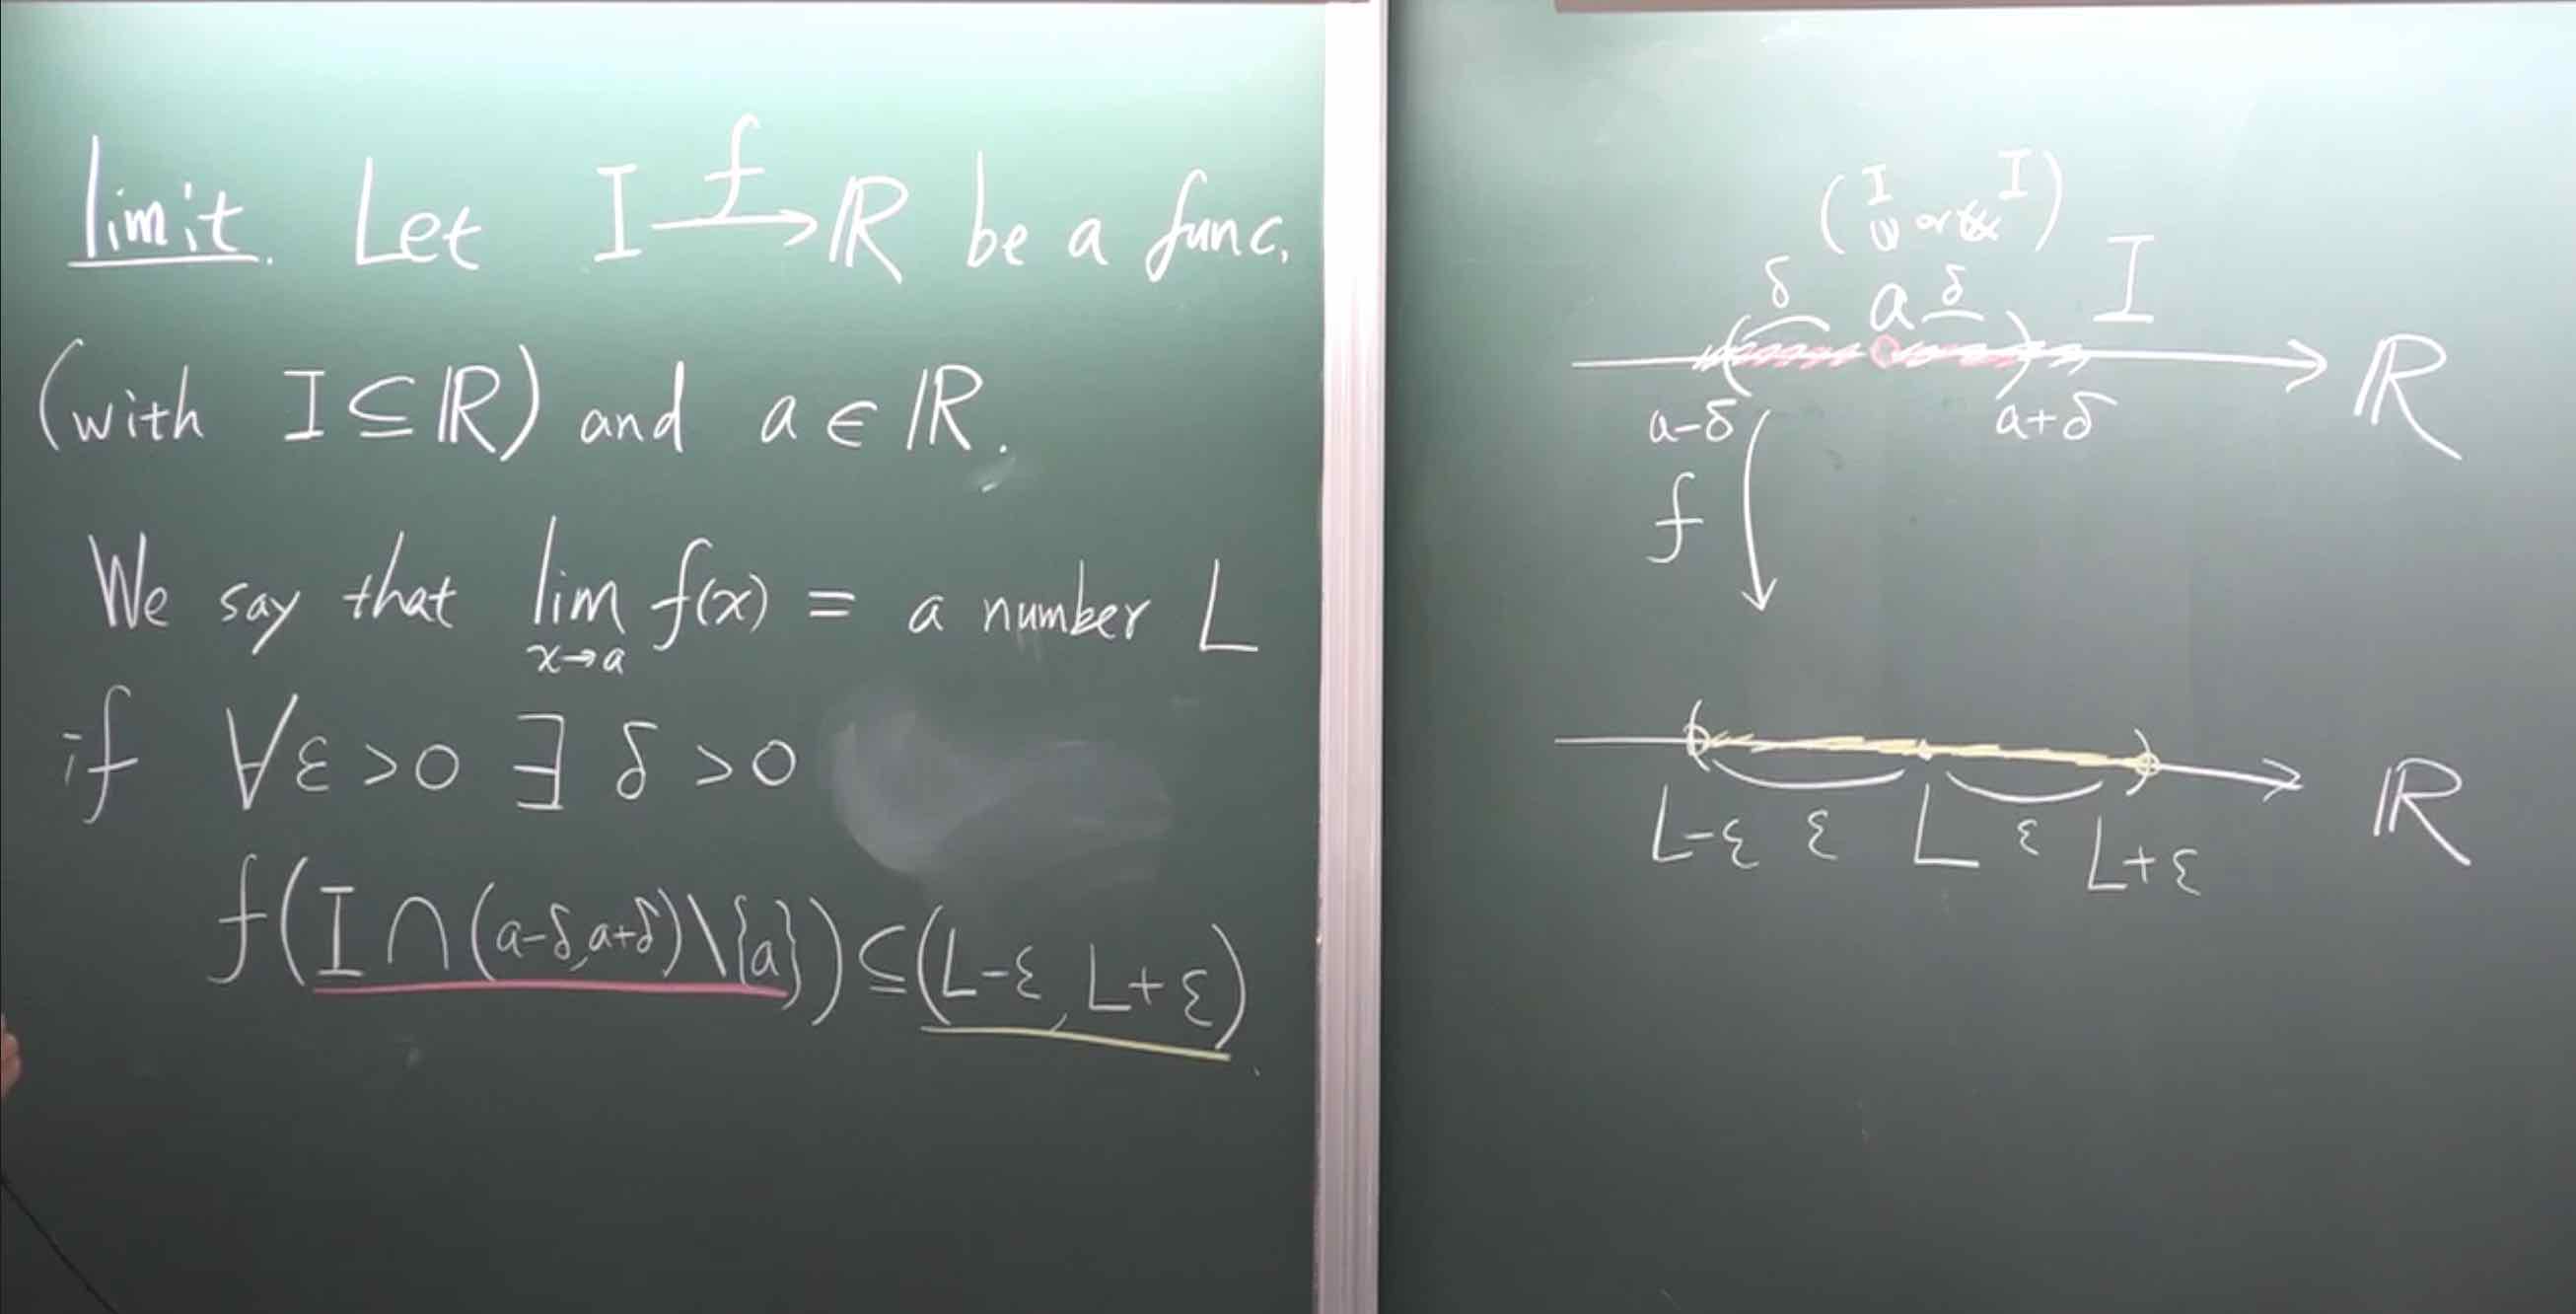 limit. Let I \xrightarrow{f} ℝ be a func.
(with I ⊆ ℝ) and a ∈ ℝ.
We say that lim_{x→a} f(x) = a number L
if ∀ε>0 ∃ δ>0
f(I∩(a-δ,a+δ)\{a})⊆(L-ε, L+ε)
I or I
δ a δ I
ℝ
a-δ a+δ
f
ℝ
L-ε ε L ε L+ε